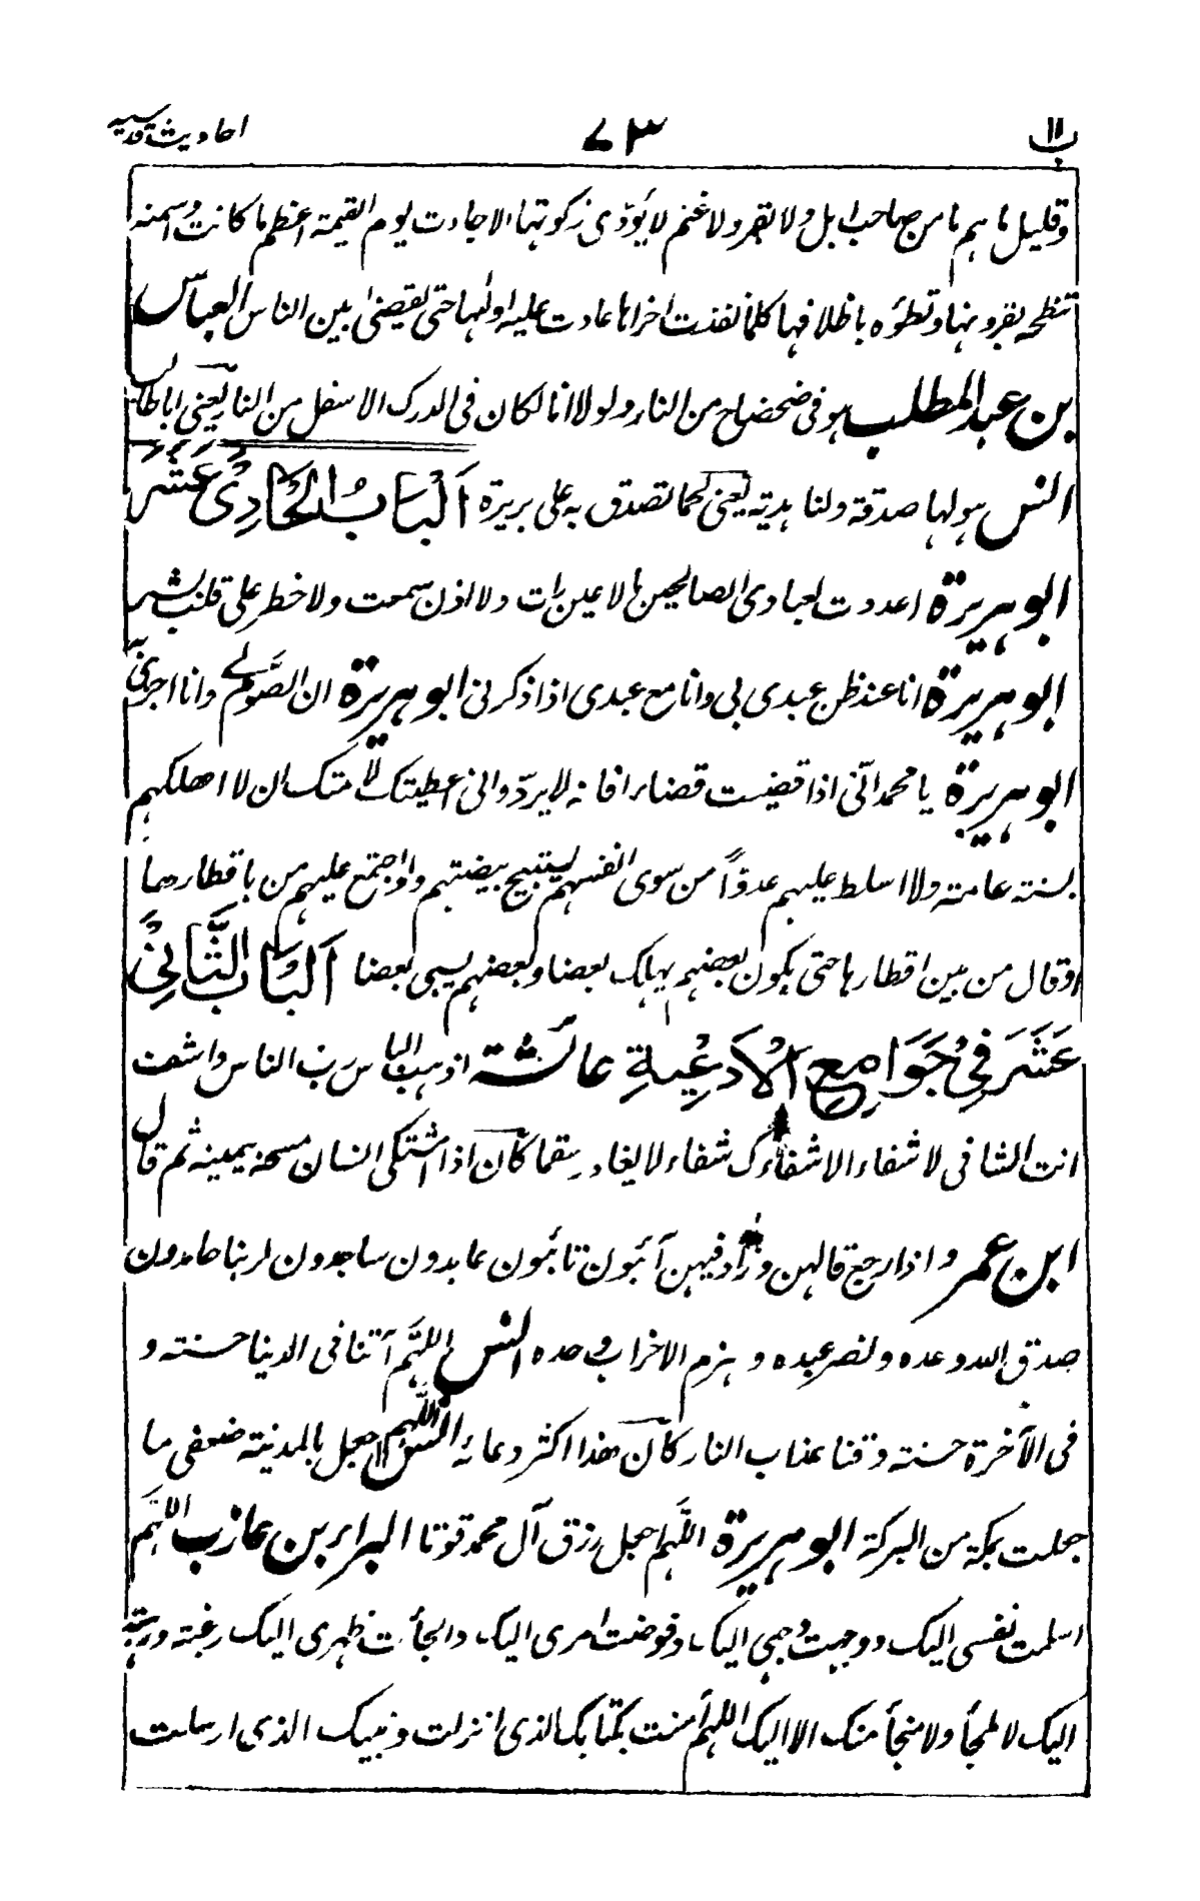 احادیث قدسیه ٧٣ ب ١١
وقليل ما ہم ما من صاحب ابل ولا بقر ولا غنم لا يؤدّى زكوتها الا جاءت يوم القيمة اعظم ما كانت واسمنه
تنطحه بقرونها وتطؤه باظلافها كلما نفذت اخراها عادت عليه اولها حتى يقضىٰ بين الناس العباسؓ
بن عبد المطلب هو فى ضحضاح من النار ولولا انا لكان فى الدرك الاسفل من النار يعنى اباطالب
انس هو لها صدقة ولنا هدية يعنى لحما تصدق به على بريرة اَلْبَابُ الْحَادِیْ عَشَرَ
ابو هريرة اعددت لعبادى الصالحين ما لا عين رات ولا اذن سمعت ولا خطر على قلب بشر
ابو هريرة انا عند ظن عبدى بى وانا مع عبدى اذا ذكرنى ابو هريرة ان الصَّوم لى وانا اجزى به
ابو هريرة يا محمد انّى اذا قضيت قضاء فانه لا يردّ وانى اعطيتك لامتك ان لا اهلكهم
بسنة عامة ولا اسلط عليهم عدوّاً من سوى انفسهم يستبيح بيضتهم ولو اجتمع عليهم من باقطارها
او قال من بين اقطارها حتى يكون بعضهم يهلك بعضا وبعضهم يسبى بعضا اَلْبَابُ الثَّانِیْ
عَشَرَ فِیْ جَوَامِعِ الْاَدْعِيَةِ عائشة اذهب الباس رب الناس واشف
انت الشافى لا شفاء الا شفاءك شفاء لا يغادر سقما كان اذا اشتكى انسان مسحه بيمينه ثم قال
ابن عمر و اذا رجع قالهن وزاد فيهن آئبون تائبون عابدون ساجدون لربنا حامدون
صدق الله وعده ونصر عبده و هزم الاحزاب وحده انس اللهّم آتنا فى الدنيا حسنة و
فى الآخرة حسنة وقنا عذاب النار كان هذا اكثر دعائه انس اللّهم اجعل بالمدينة ضعفى ما
جعلت بمكة من البركة ابو هريرة اللّهم اجعل رزق آل محمد قوتا البراء بن عازب اللهّم
اسلمت نفسى اليك ووجهت وجهى اليك وفوضت امرى اليك والجأت ظهرى اليك رغبة ورهبة
اليك لا ملجأ ولا منجأ منك الا اليك اللهم آمنت بكتابك الذى انزلت ونبيك الذى ارسلت